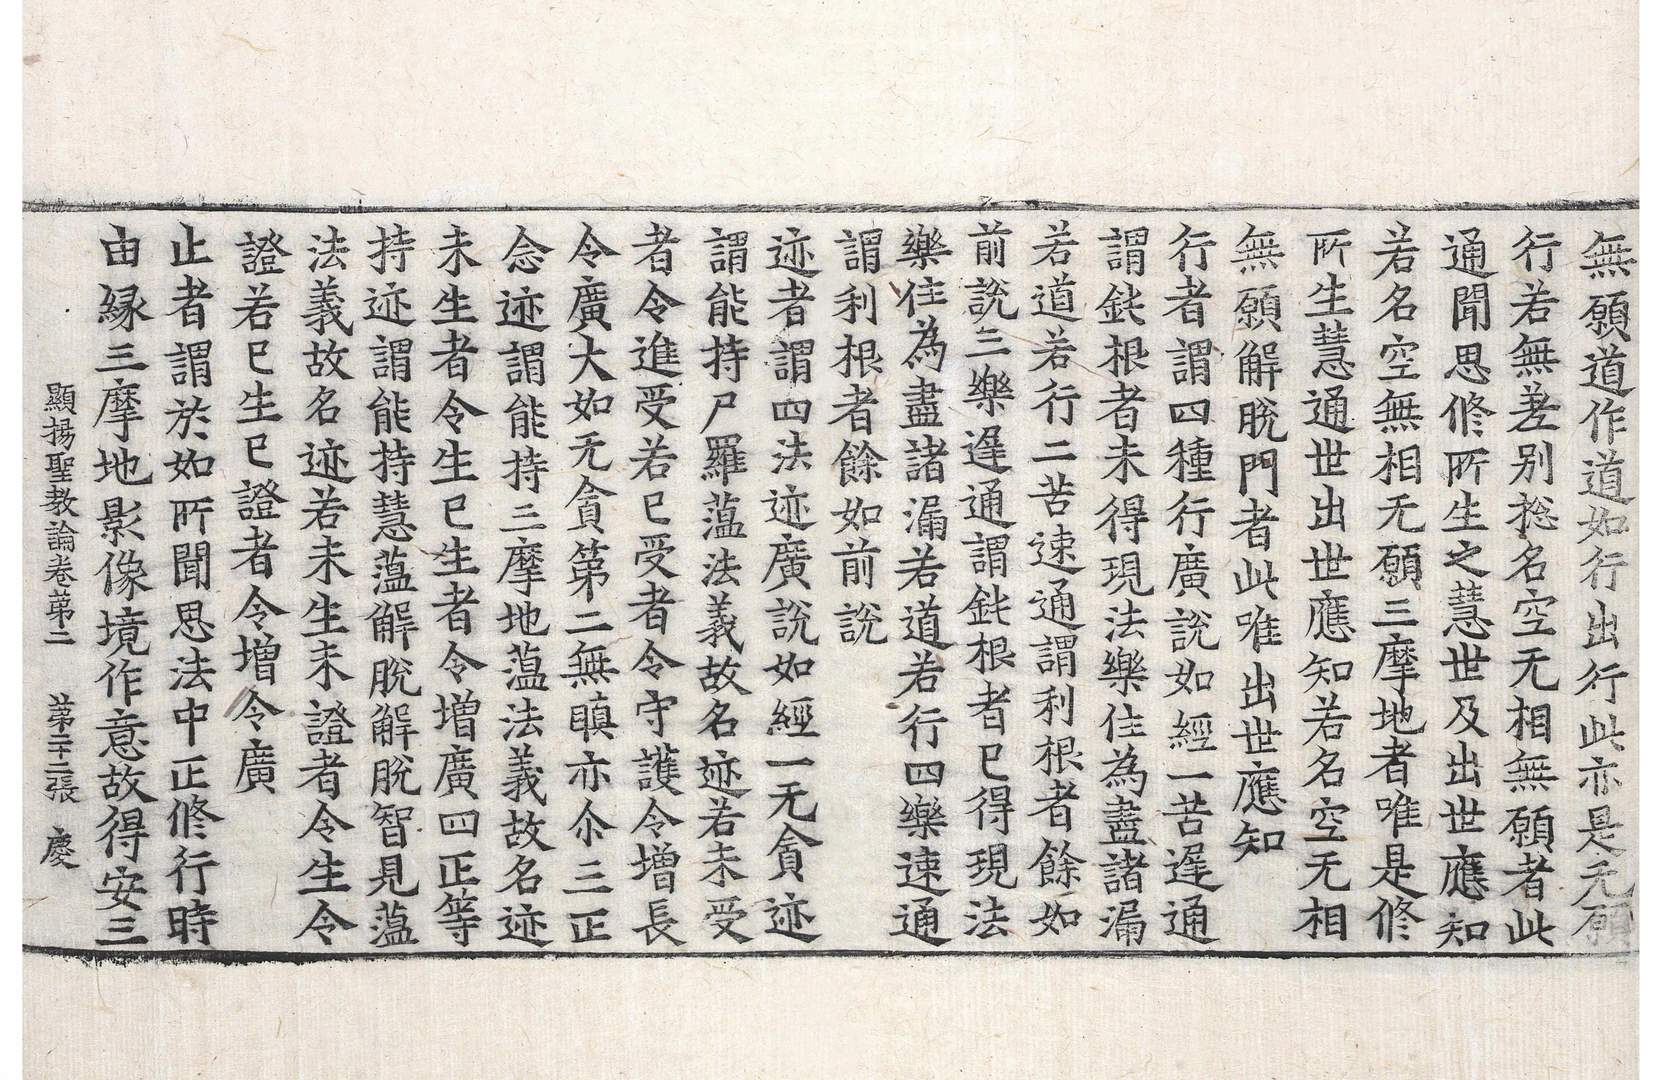 無願道作道如行出行此亦是无願
行若無差别捴名空无相無願者此
通聞思修所生之慧世及出世應知
若名空無相无願三摩地者唯是修
所生慧通世出世應知若名空无相
無願解脫門者此唯出世應知
行者謂四種行廣說如經一苦遟通
謂鈍根者未得現法樂住為盡諸漏
若道若行二苦速通謂利根者餘如
前說三樂遟通謂鈍根者已得現法
樂住為盡諸漏若道若行四樂速通
謂利根者餘如前說
迹者謂四法迹廣說如經一无貪迹
謂能持尸羅薀法義故名迹若未受
者令進受若已受者令守護令增長
令廣大如无貪第二無瞋亦尒三正
念迹謂能持三摩地薀法義故名迹
未生者令生已生者令增廣四正等
持迹謂能持慧薀解脫解脫智見薀
法義故名迹若未生未證者令生令
證若已生已證者令增令廣
止者謂於如所聞思法中正修行時
由縁三摩地影像境作意故得安三
顯揚聖教論卷苐二　苐二十二張　慶